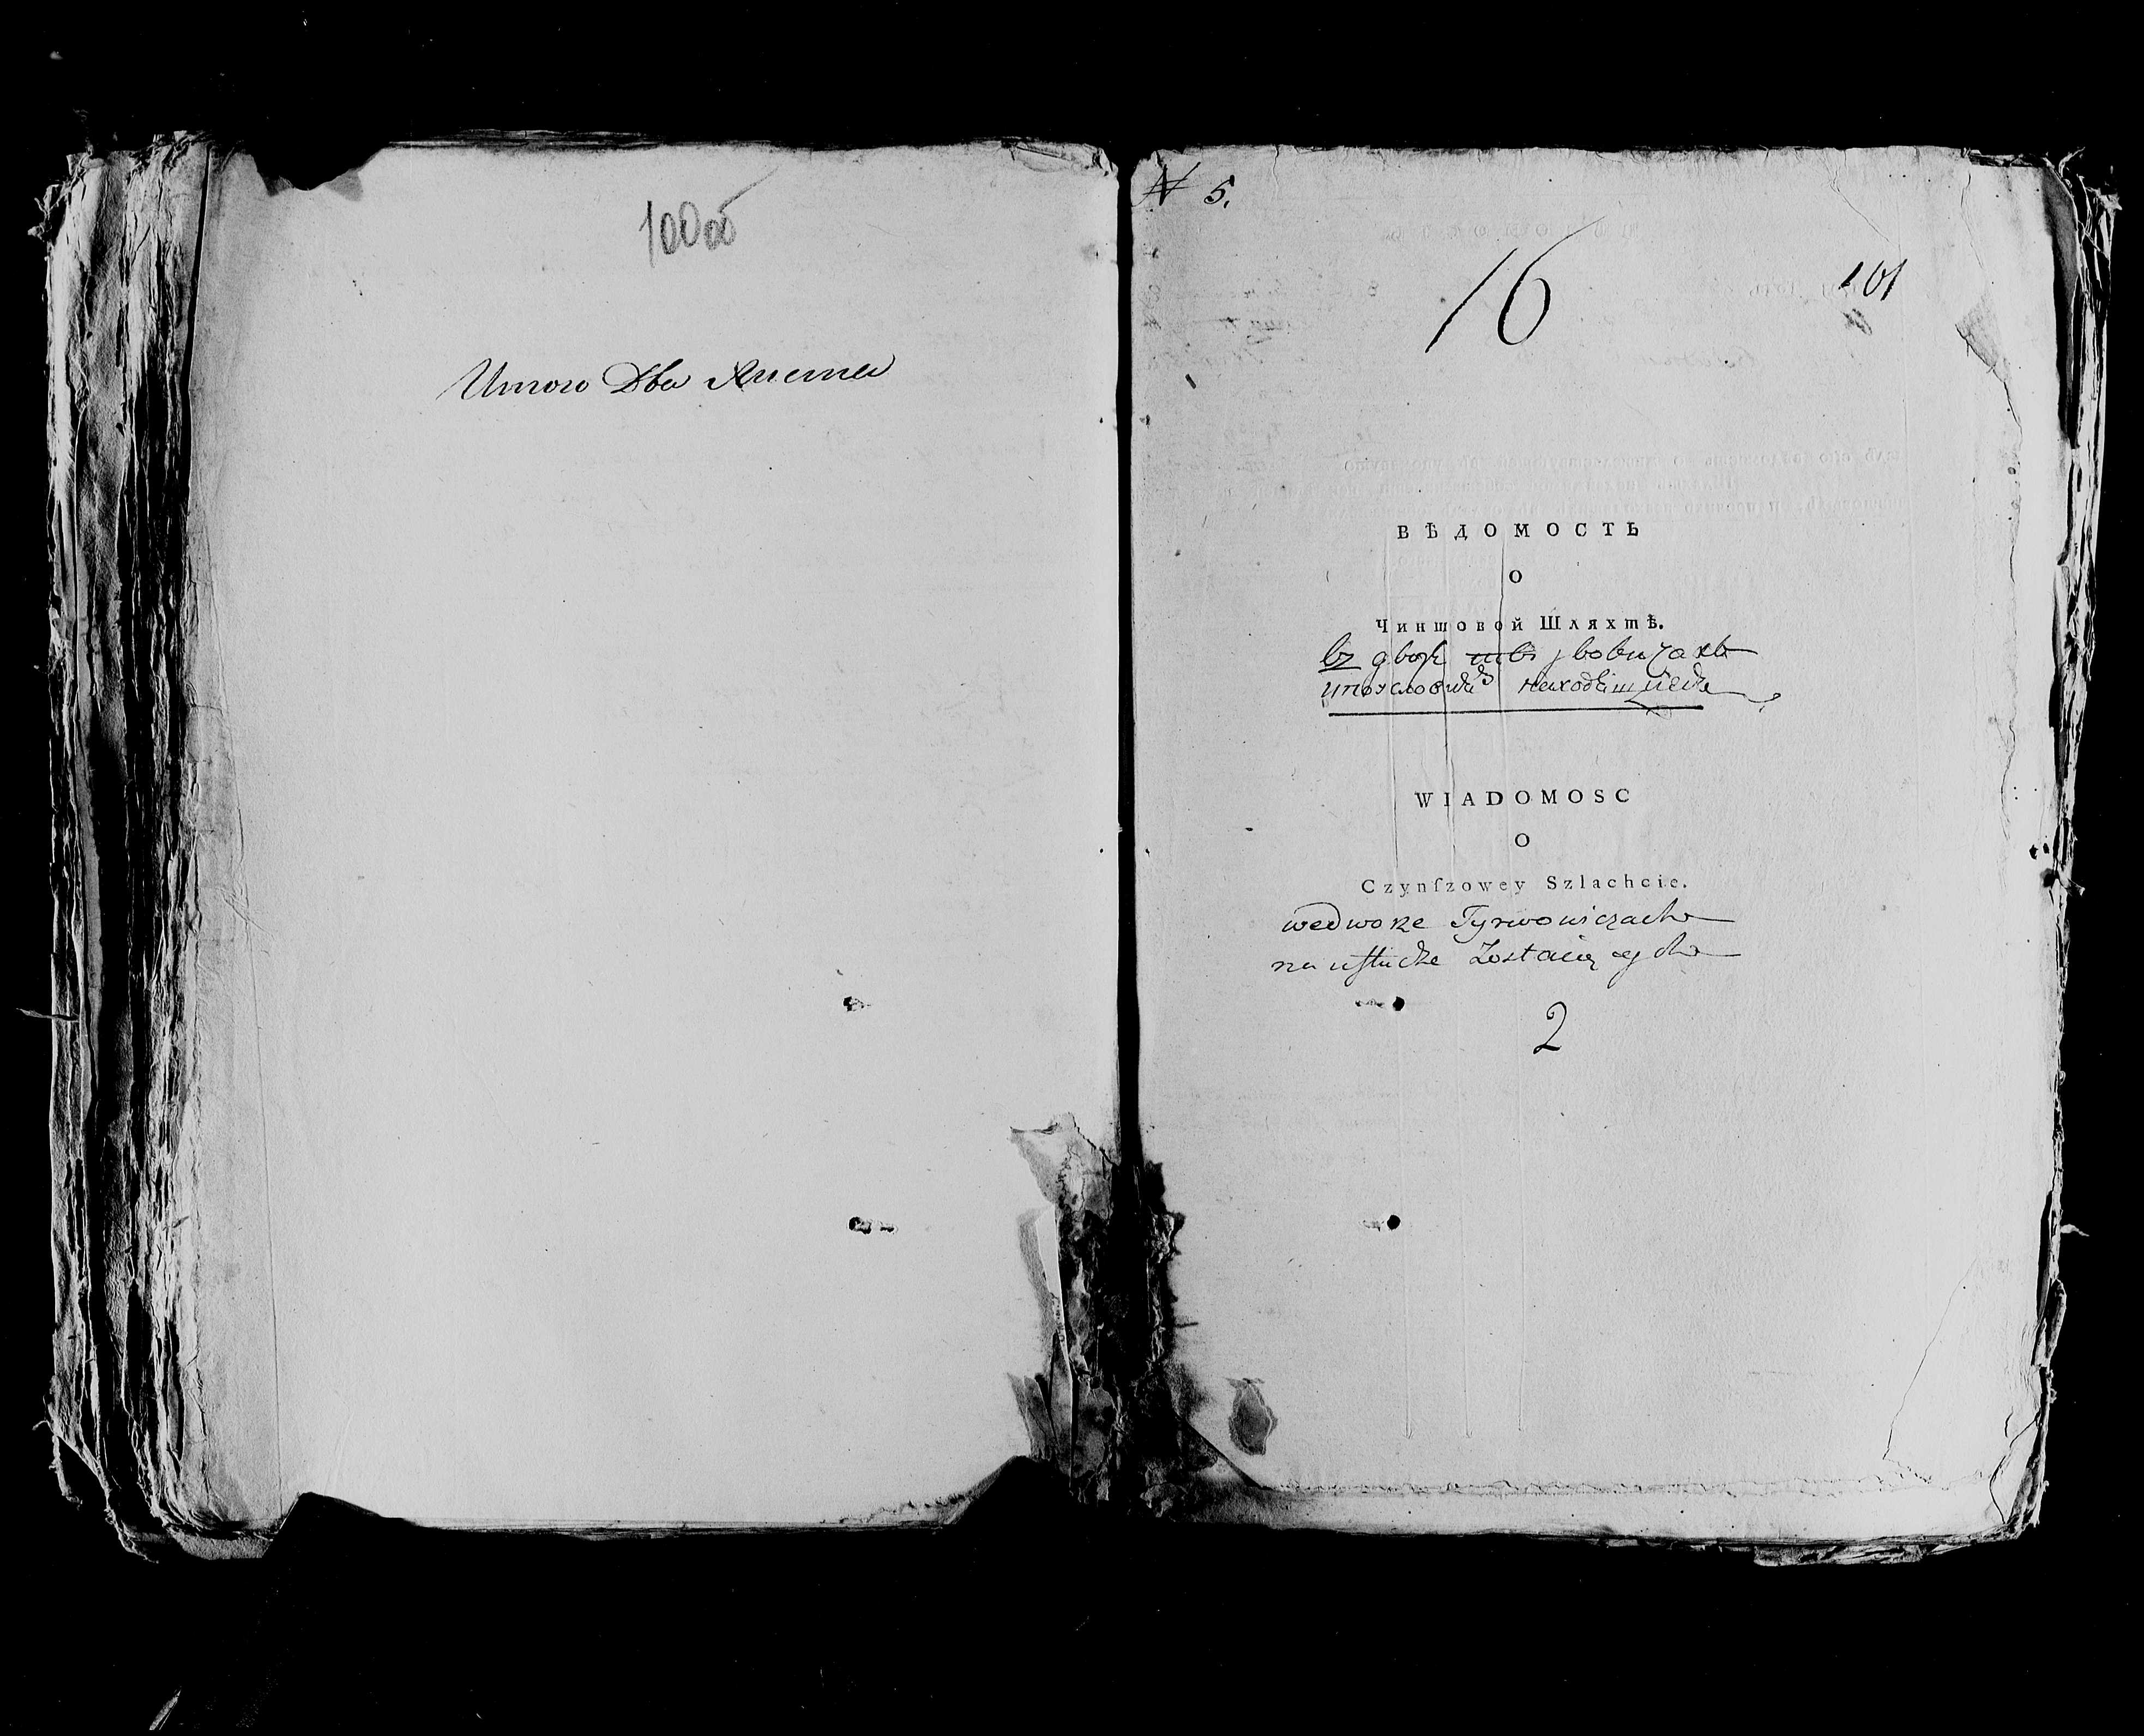 100об
Итого Два Листа
№ 5.
16
101
ВѢДОМОСТЬ
О
Чиншовой Шляхтѣ.
въ дворѣ
находящейся
WIADOMOSC
O
Czynſzowey Szlachcie.
wedworze Tyrwowiczach
na usłudze Zostaiących
2